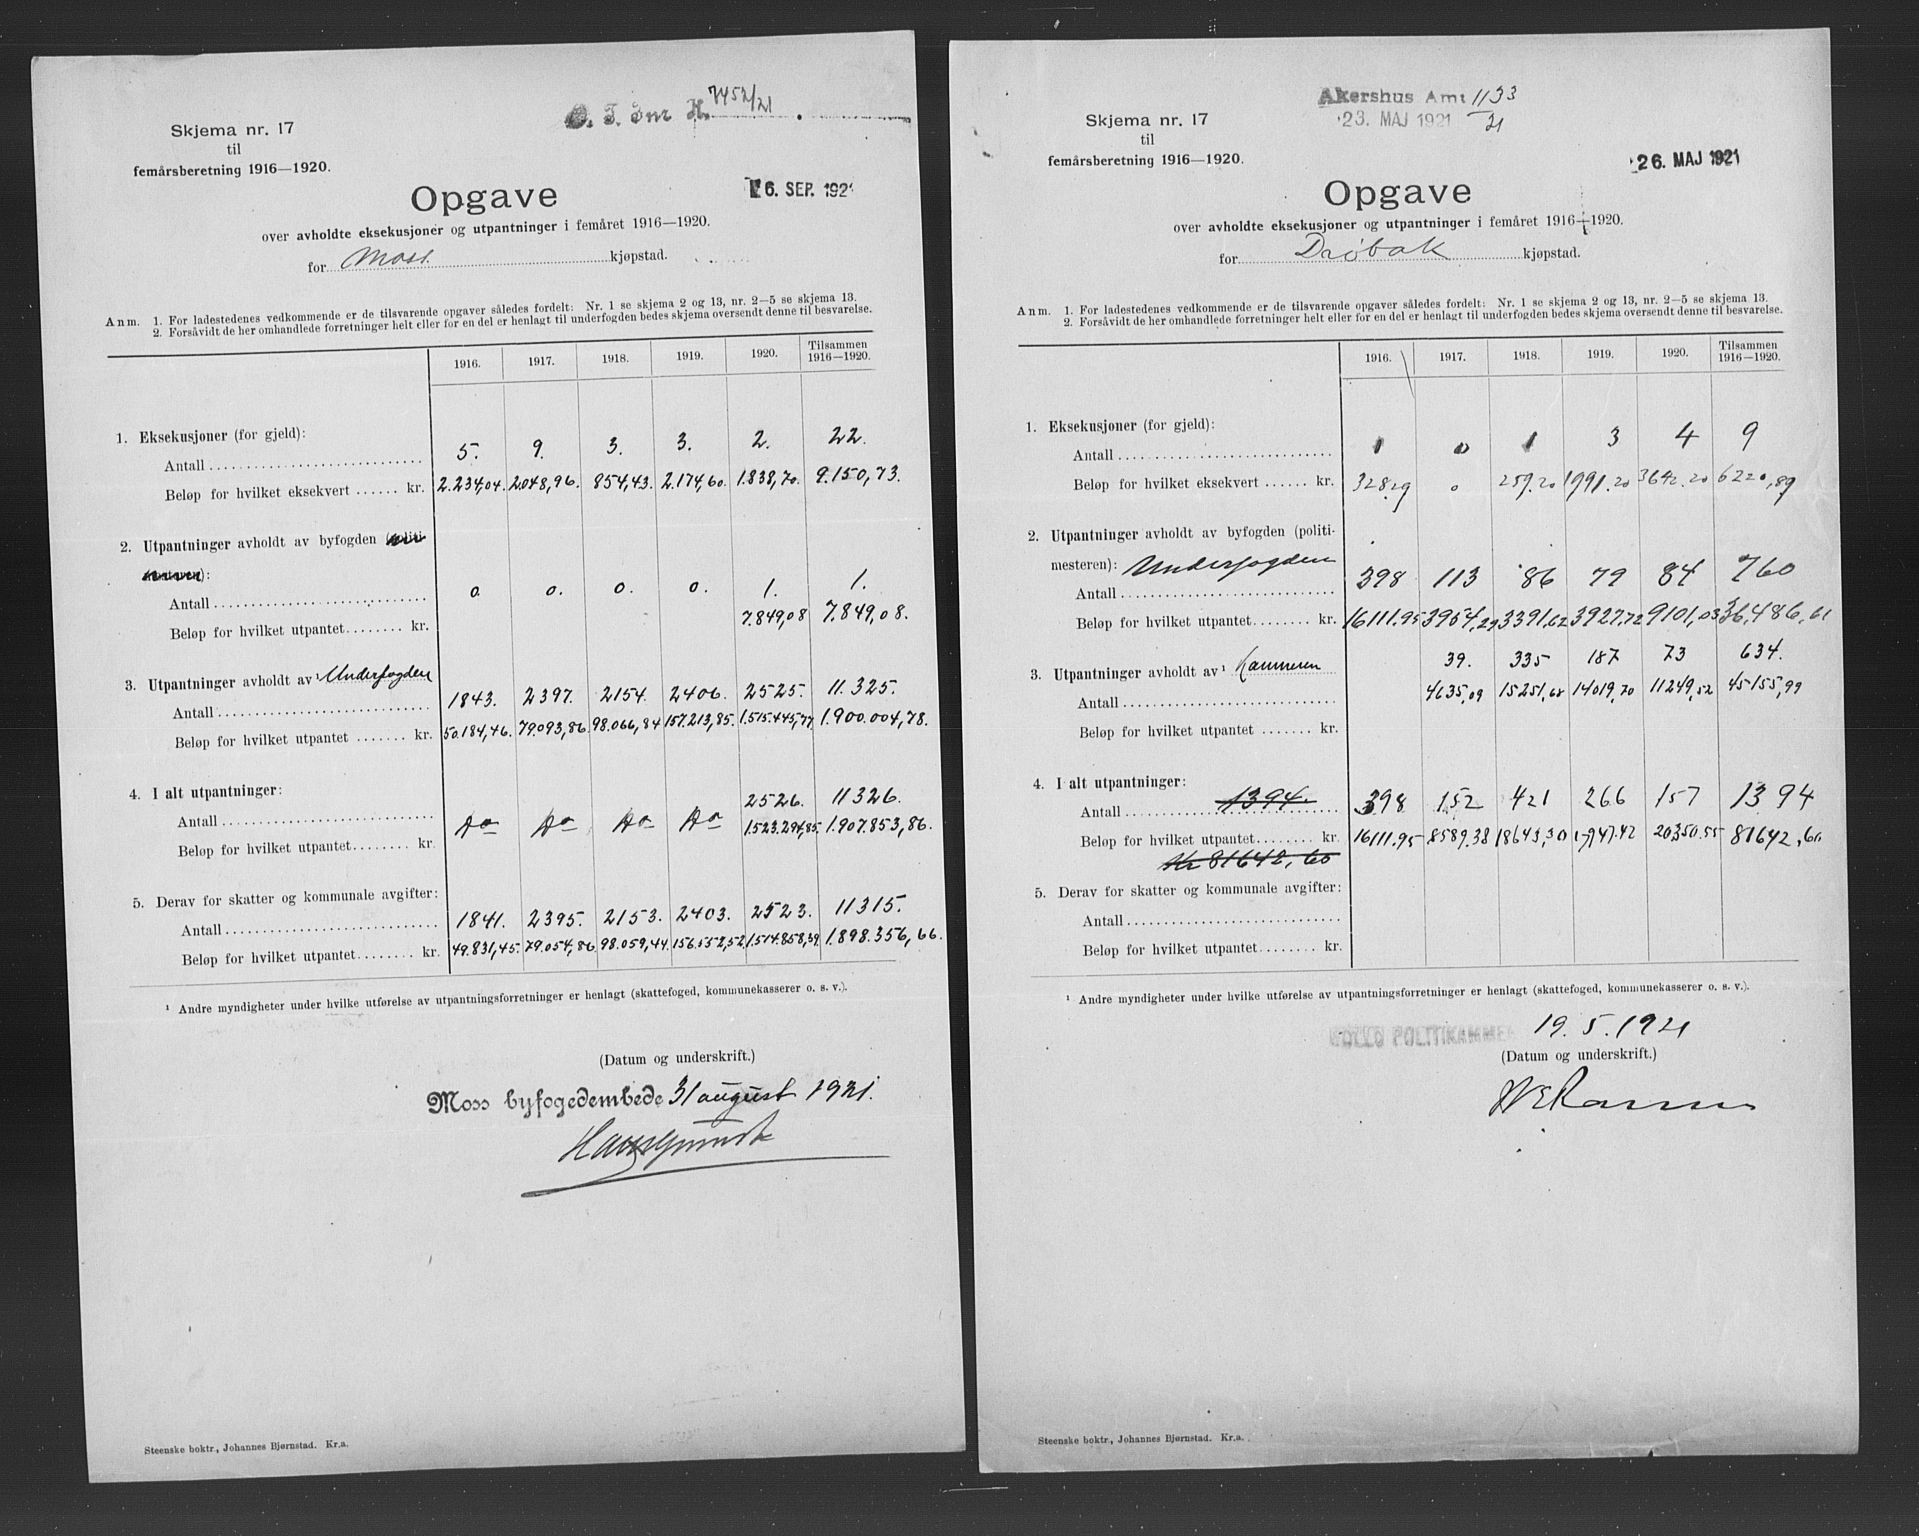 7452/21
Skjema nr. 17
til
femårsberetning 1916—1920.
6. SEP. 1921
Opgave
over avholdte eksekusjoner og utpantninger i femåret 1916—1920.
for Moss kjøpstad.
Anm. 1. For ladestedenes vedkommende er de tilsvarende opgaver således fordelt: Nr. 1 se skjema 2 og 13, nr. 2—5 se skjema 13.
2. Forsåvidt de her omhandlede forretninger helt eller for en del er henlagt til underfogden bedes skjema oversendt denne til besvarelse.
1916. 1917. 1918. 1919. 1920. Tilsammen 1916—1920.
1. Eksekusjoner (for gjeld):
Antall 5. 9. 3. 3. 2. 22.
Beløp for hvilket eksekvert kr. 2.234,04. 2.048,96. 854,43. 2.174,60. 1.838,70. 9.150,73.
2. Utpantninger avholdt av byfogden (politi-
mesteren):
Antall 0. 0. 0. 0. 1. 1.
Beløp for hvilket utpantet kr. 7.849,08 7.849,08.
3. Utpantninger avholdt av ¹ Underfogden
Antall 1843. 2397. 2154. 2406. 2525. 11.325.
Beløp for hvilket utpantet kr. 50.184,46. 79.093,86. 98.066,84 157.213,85. 1.515.445,77 1.900.004,78.
4. I alt utpantninger:
Antall Do Do Do Do 2526. 11326.
Beløp for hvilket utpantet kr. 1.523.294,85. 1.907.853,86.
5. Derav for skatter og kommunale avgifter:
Antall 1841. 2395. 2153. 2403. 2523. 11315.
Beløp for hvilket utpantet kr. 49.831,45. 79.054,86 98.059,44. 156.552,52. 1.514.858,39 1.898.356,66.
¹ Andre myndigheter under hvilke utførelse av utpantningsforretninger er henlagt (skattefoged, kommunekasserer o. s. v.).
(Datum og underskrift.)
Moss byfogedembede 31 august 1921.
Steenske boktr., Johannes Bjørnstad. Kr.a.
Akershus Amt 1133/21
23. MAJ 1921
Skjema nr. 17
til
femårsberetning 1916—1920.
26. MAJ 1921
Opgave
over avholdte eksekusjoner og utpantninger i femåret 1916—1920.
for Drøbak kjøpstad.
Anm. 1. For ladestedenes vedkommende er de tilsvarende opgaver således fordelt: Nr. 1 se skjema 2 og 13, nr. 2—5 se skjema 13.
2. Forsåvidt de her omhandlede forretninger helt eller for en del er henlagt til underfogden bedes skjema oversendt denne til besvarelse.
1916. 1917. 1918. 1919. 1920. Tilsammen 1916—1920.
1. Eksekusjoner (for gjeld):
Antall 1 0 1 3 4 9
Beløp for hvilket eksekvert kr. 328.29 0 259.20 1991.20 3642.20 6220,89
2. Utpantninger avholdt av byfogden (politi-
mesteren): Underfogden
Antall 398 113 86 79 84 760
Beløp for hvilket utpantet kr. 16111.95 3954,29 3391,62 3927,72 9101,03 36,486,61
3. Utpantninger avholdt av ¹ Kæmneren
Antall 39. 335 187 73 634.
Beløp for hvilket utpantet kr. 4635,09 15251,68 14019,70 11249,52 45155,99
4. I alt utpantninger:
Antall 1394. 398 152 421 266 157 1394
Beløp for hvilket utpantet kr. 16111.95 8589.38 18643,30 17947.42 20350.55 81642,60
Kr 81642,60
5. Derav for skatter og kommunale avgifter:
Antall
Beløp for hvilket utpantet kr.
¹ Andre myndigheter under hvilke utførelse av utpantningsforretninger er henlagt (skattefoged, kommunekasserer o. s. v.).
POLITIKAMMER 19.5.1921
(Datum og underskrift.)
Steenske boktr., Johannes Bjørnstad. Kr.a.